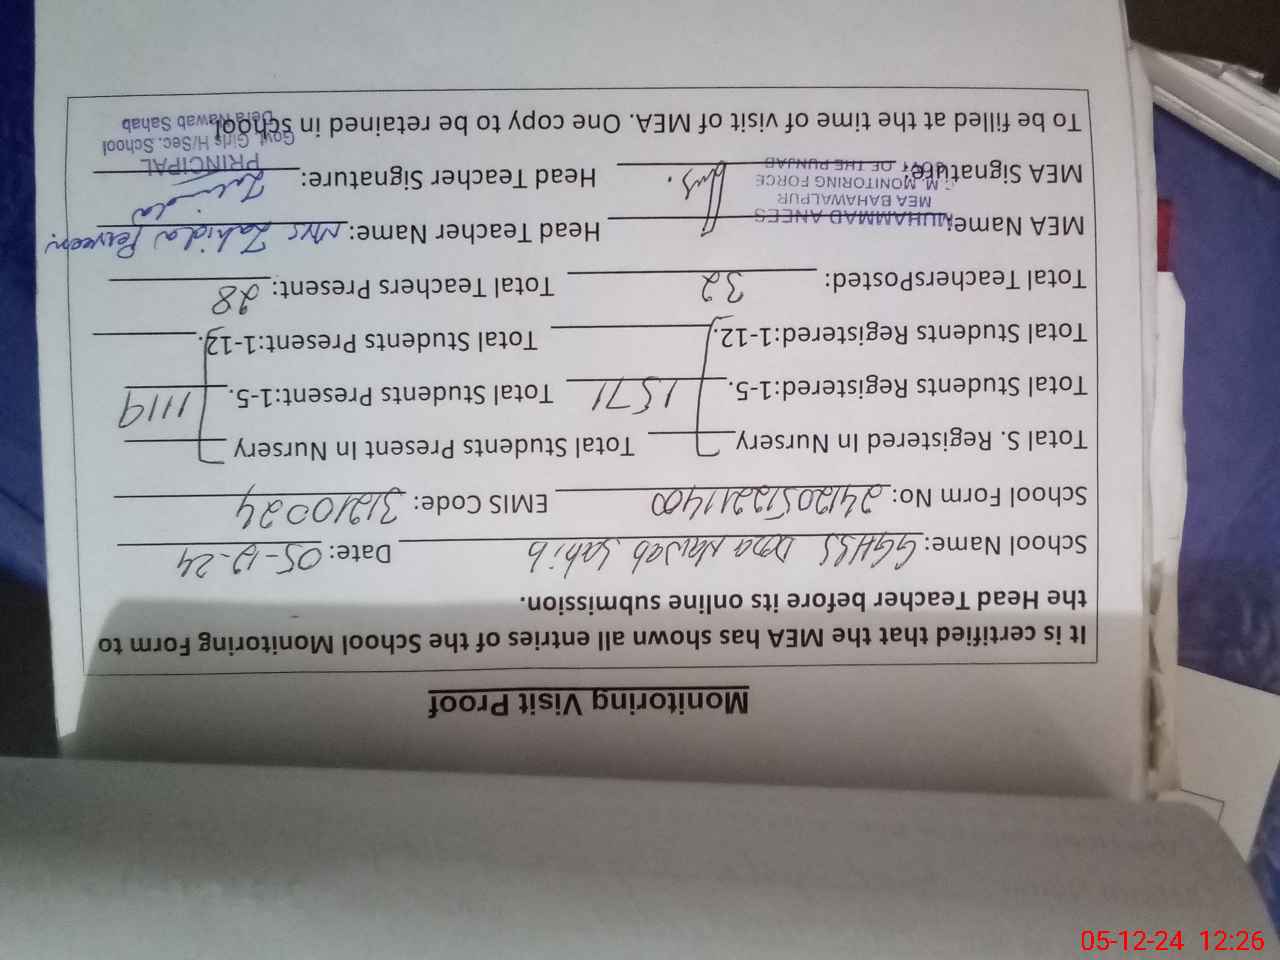 Monitoring Visit Proof
It is certified that the MEA has shown all entries of the School Monitoring Form to
the Head Teacher before its online submission.
School Name: GGHSS Dera Nawab Sahib Date: 05-12-24
School Form No: 24120512211400 EMIS Code: 31210024
Total S. Registered In Nursery Total Students Present In Nursery
Total Students Registered:1-5. 1571 Total Students Present:1-5. 1119
Total Students Registered:1-12. Total Students Present:1-12.
Total TeachersPosted: 32 Total Teachers Present: 28
MEA Name: MUHAMMAD ANEES Head Teacher Name: Mrs Zahida Perveen
MEA BAHAWALPUR
C.M. MONITORING FORCE
GOVT OF THE PUNJAB
MEA Signature: Head Teacher Signature: Zahida
PRINCIPAL
Govt. Girls H/Sec. School
Dera Nawab Sahab
To be filled at the time of visit of MEA. One copy to be retained in school
05-12-24 12:26